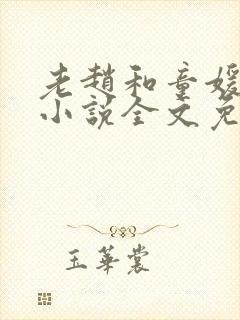 老趙和童媛
小說全文免
玉華裳